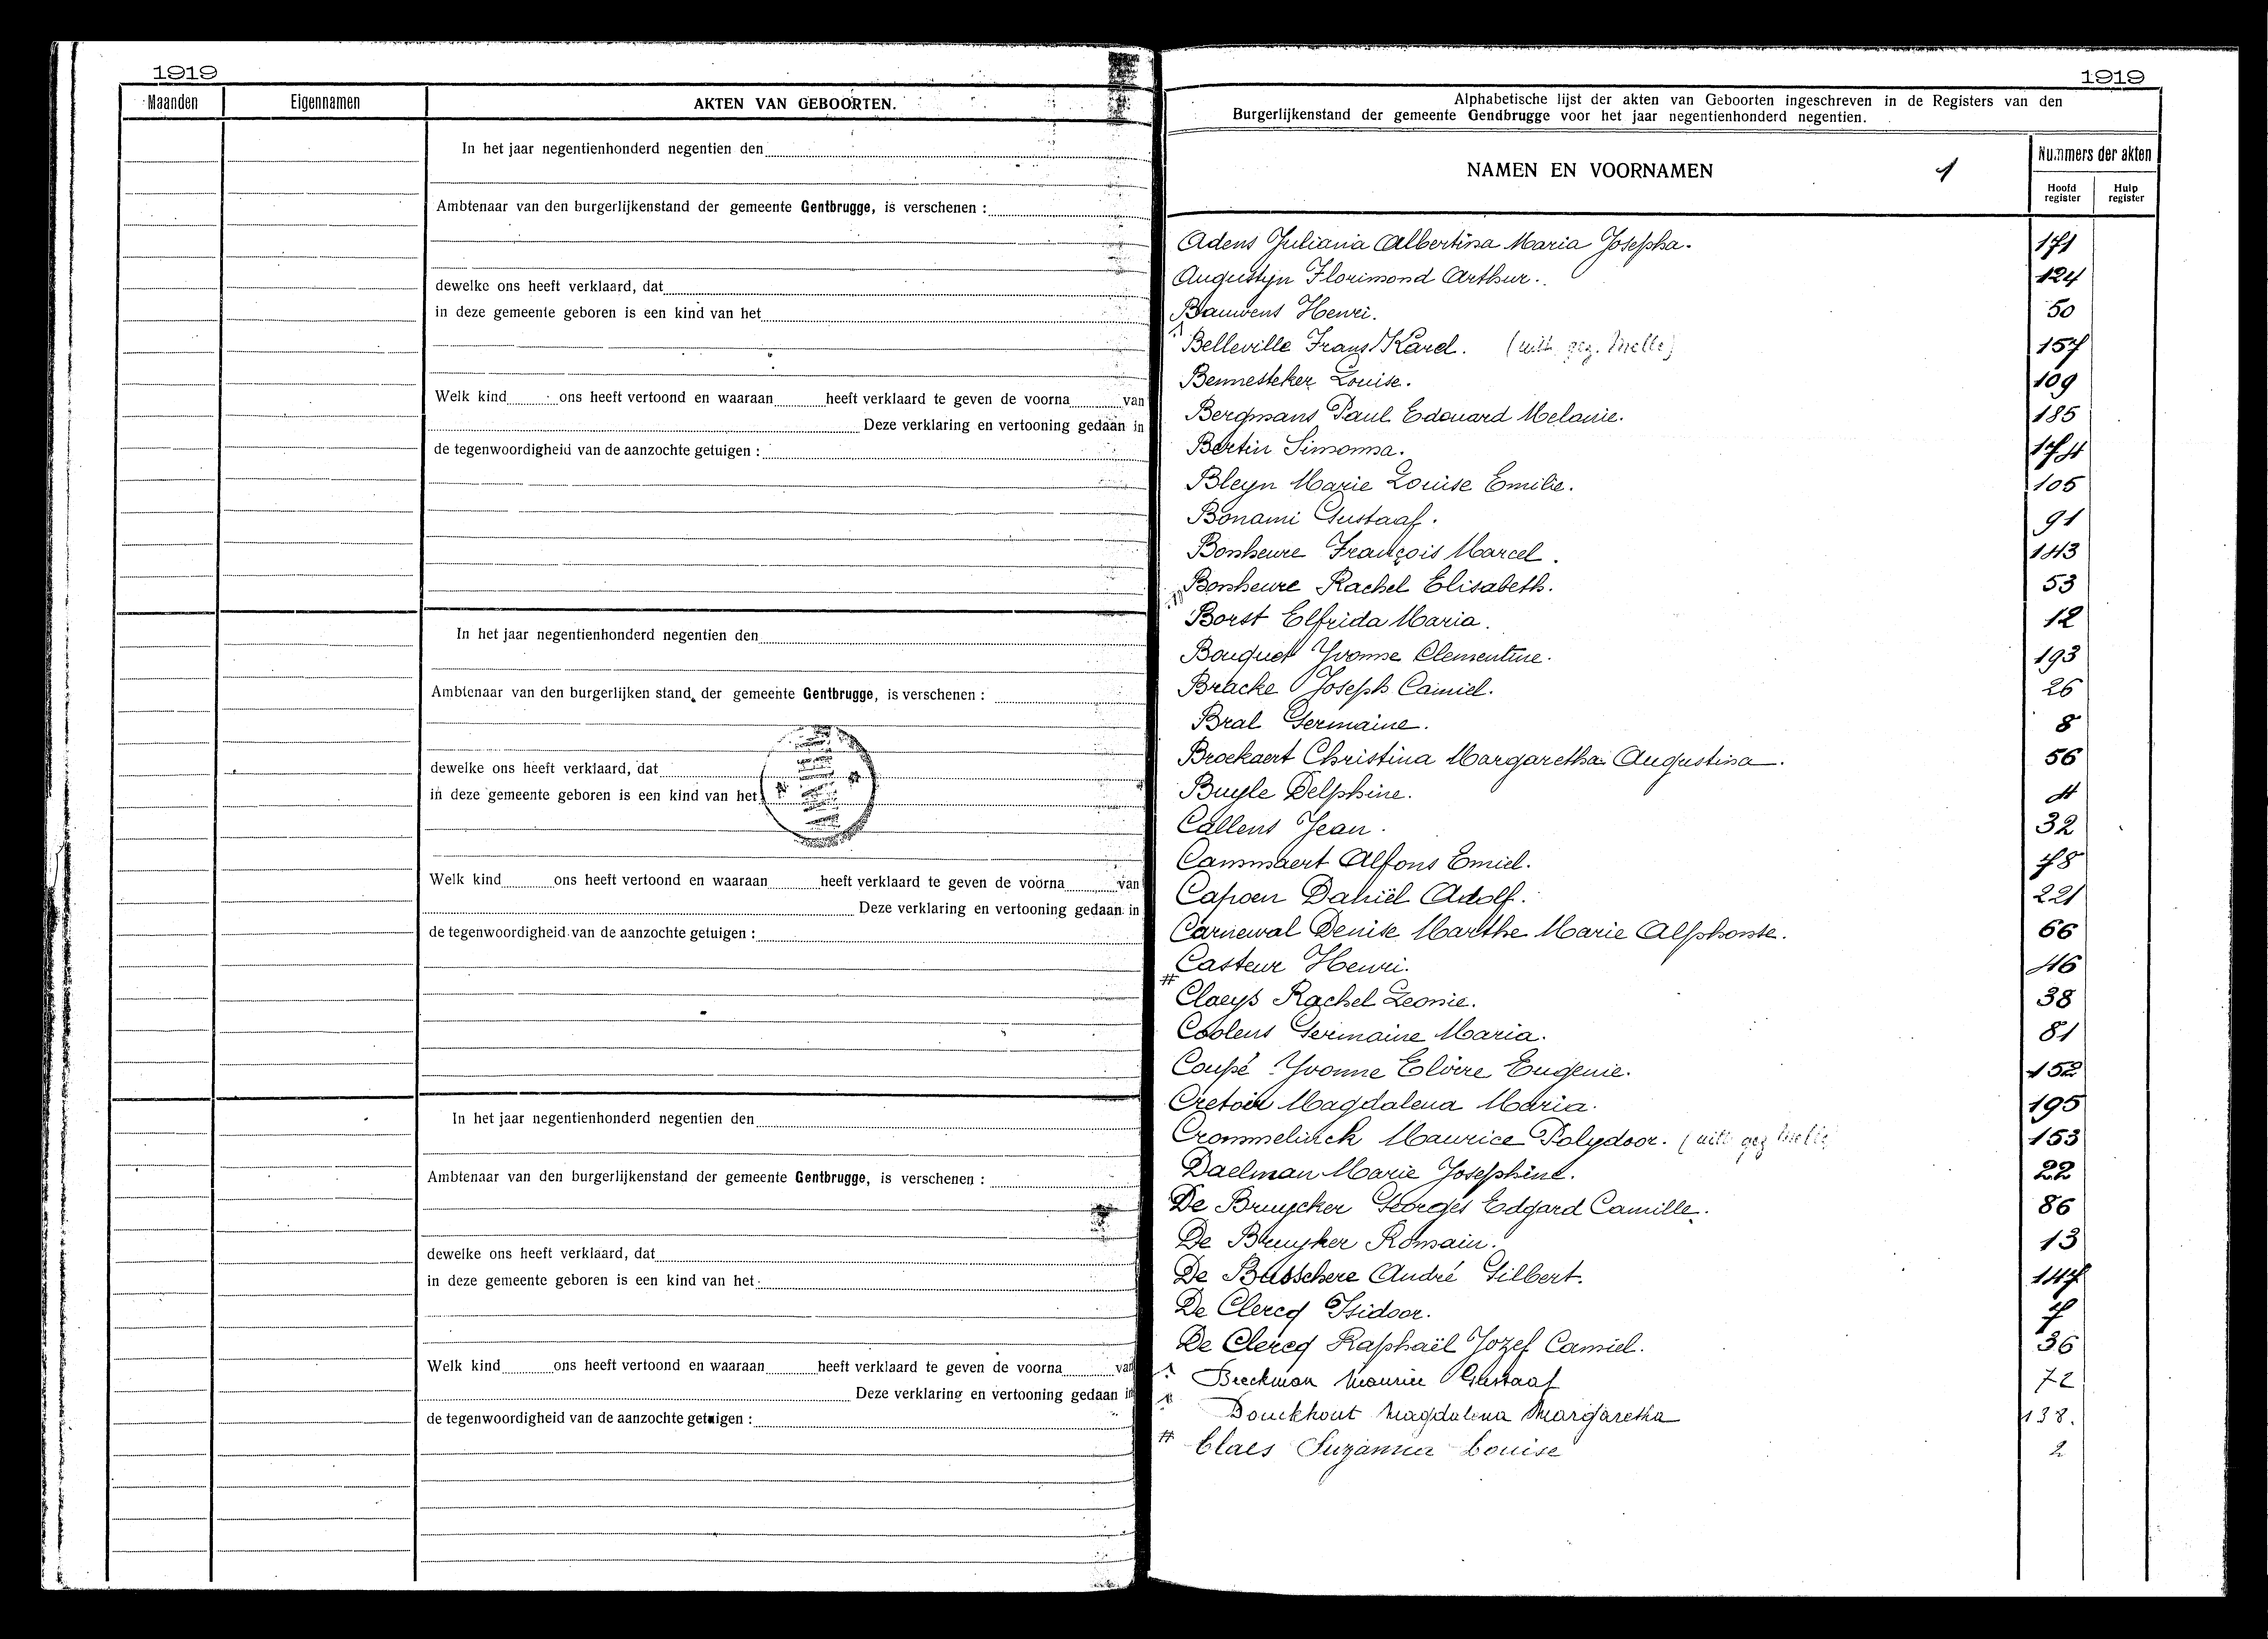 1919
Maanden Eigennamen AKTEN VAN GEBOORTEN.
In het jaar negentienhonderd negentien den
Ambtenaar van den burgerlijkenstand der gemeente Gentbrugge, is verschenen :
dewelke ons heeft verklaard, dat
in deze gemeente geboren is een kind van het
Welk kind ons heeft vertoond en waaraan heeft verklaard te geven de voorna van
Deze verklaring en vertooning gedaan in
de tegenwoordigheid van de aanzochte getuigen :
In het jaar negentienhonderd negentien den
Ambtenaar van den burgerlijken stand der gemeente Gentbrugge, is verschenen :
dewelke ons heeft verklaard, dat
in deze gemeente geboren is een kind van het
Welk kind ons heeft vertoond en waaraan heeft verklaard te geven de voorna van
Deze verklaring en vertooning gedaan in
de tegenwoordigheid van de aanzochte getuigen :
In het jaar negentienhonderd negentien den
Ambtenaar van den burgerlijkenstand der gemeente Gentbrugge, is verschenen :
dewelke ons heeft verklaard, dat
in deze gemeente geboren is een kind van het
Welk kind ons heeft vertoond en waaraan heeft verklaard te geven de voorna van
Deze verklaring en vertooning gedaan in
de tegenwoordigheid van de aanzochte getuigen :
1919
Alphabetische lijst der akten van Geboorten ingeschreven in de Registers van den
Burgerlijkenstand der gemeente Gendbrugge voor het jaar negentienhonderd negentien.
NAMEN EN VOORNAMEN 1 Nummers der akten
Hoofd register Hulp register
Adens Juliana Albertina Maria Josepha. 171
Augustyn Florimond Arthur. 124
Bauwens Henri. 50
Belleville Frans Karel. (uitt. gez. Melle) 157
Bennesteker Louise. 109
Bergmans Paul Edouard Melanie. 185
Bertin Simonna. 174
Bleyn Marie Louise Emilie. 105
Bonami Gustaaf. 91
Bonheure François Marcel. 143
Bonheure Rachel Elisabeth. 53
Borst Elfrida Maria. 12
Bouquet Yvonne Clementine. 193
Bracke Joseph Camiel. 26
Bral Germaine. 8
Broekaert Christina Margaretha Augustina. 56
Buyle Delphine. 4
Callens Jean. 32
Cammaert Alfons Emiel. 78
Capoen Daniël Adolf. 221
Carnewal Denise Marthe Marie Alphonse. 66
Casteur Henri. 46
# Claeys Rachel Leonie. 38
Coolens Germaine Maria. 81
Coupé Yvonne Elvire Eugenie. 152
Cretoir Magdalena Maria. 195
Crommelinck Maurice Polydoor. (uitt gez Melle) 153
Daelman Marie Josephine. 22
De Bruycker Georges Edgard Camille. 86
De Bruyker Romain. 13
De Busschere André Gilbert. 147
De Clercq Isidoor. 7
De Clercq Raphaël Jozef Camiel. 36
Beeckman Maurice Gustaaf 72
Bouckhout Magdalena Margaretha 138.
# Claes Suzanna Louise 2